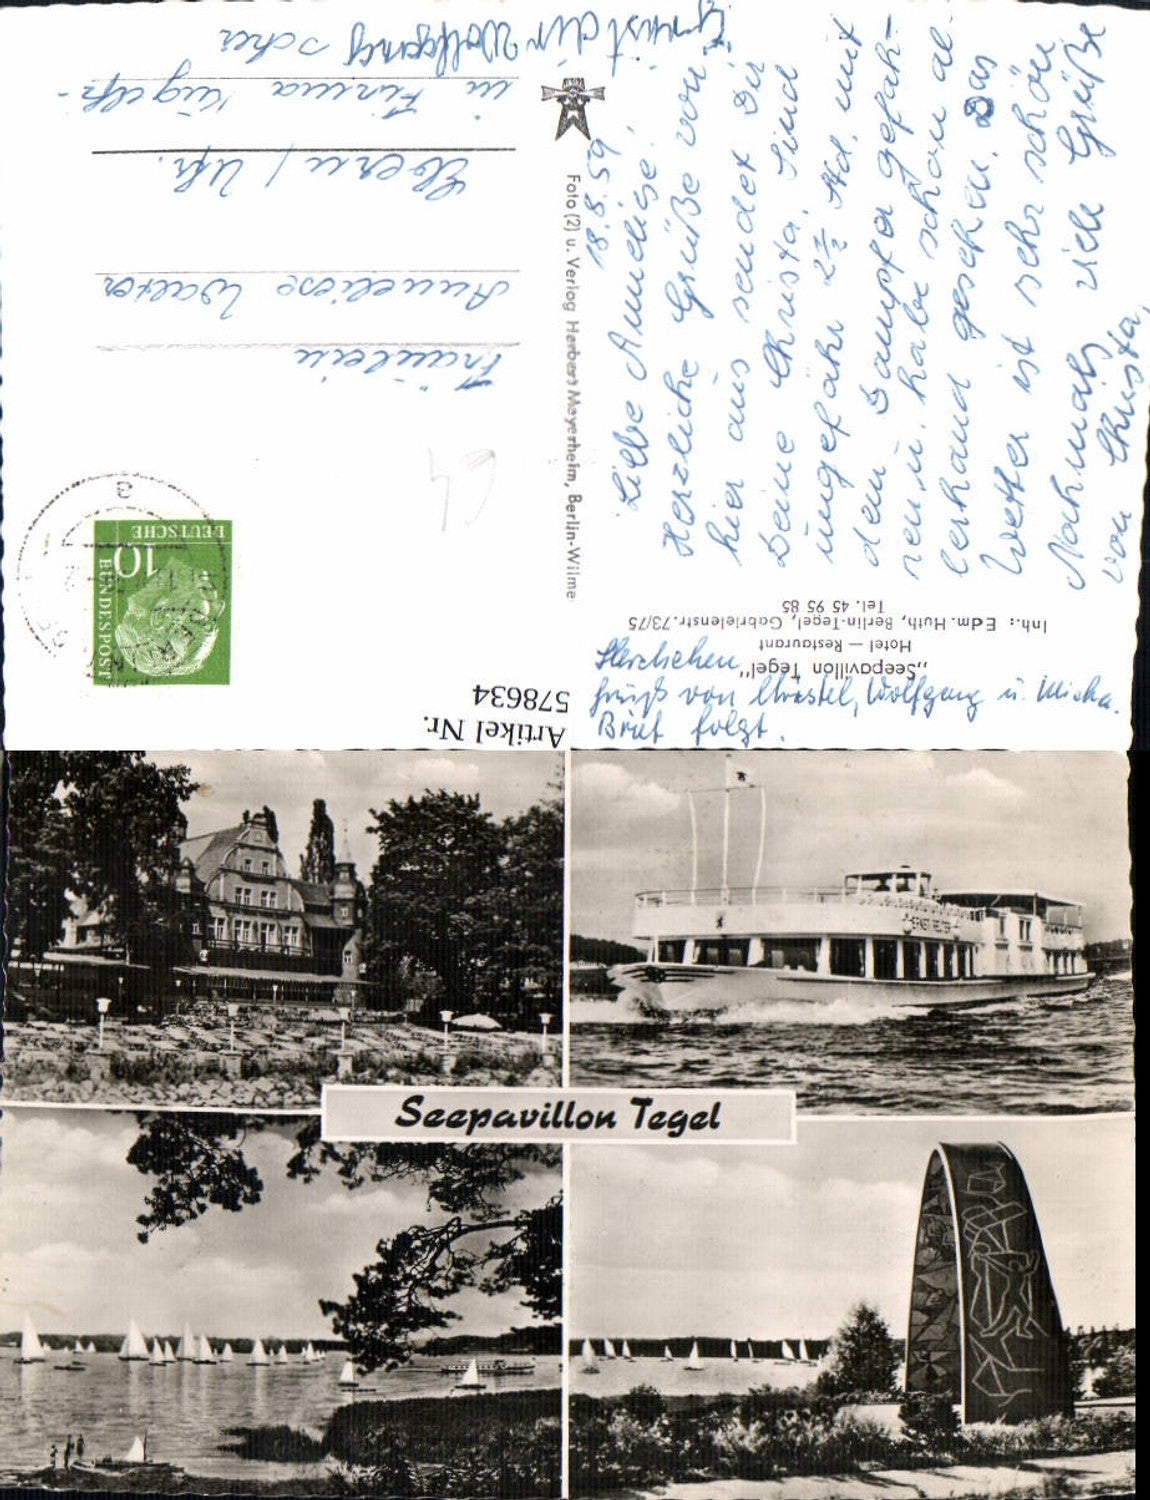 "Seepavillon Tegel"
Hotel — Restaurant
Inh.: Edm. Huth, Berlin-Tegel, Gabrielenstr. 73/75
Tel. 45 95 85
18.8.59
Liebe Anneliese!
Herzliche Grüße von
hier aus sendet Dir
Deine Christa. Sind
ungefähr 2 1/2 Std. mit
dem Dampfer gefah-
ren u. habe schon al-
lerhand gesehen. Das
Wetter ist sehr schön
Nochmals viele Grüße
von Christa,
Herzlichen
Gruß von Christel, Wolfgang u. Micha.
Brief folgt.
Foto (2) u. Verlag Herbert Meyerheim, Berlin-Wilme
DEUTSCHE
BUNDESPOST
10
Fräulein
Anneliese Walter
Ebern / Ufr.
in Firma Kugelfi-
scher
Artikel Nr.
578634
ERNST REUTER
Seepavillon Tegel